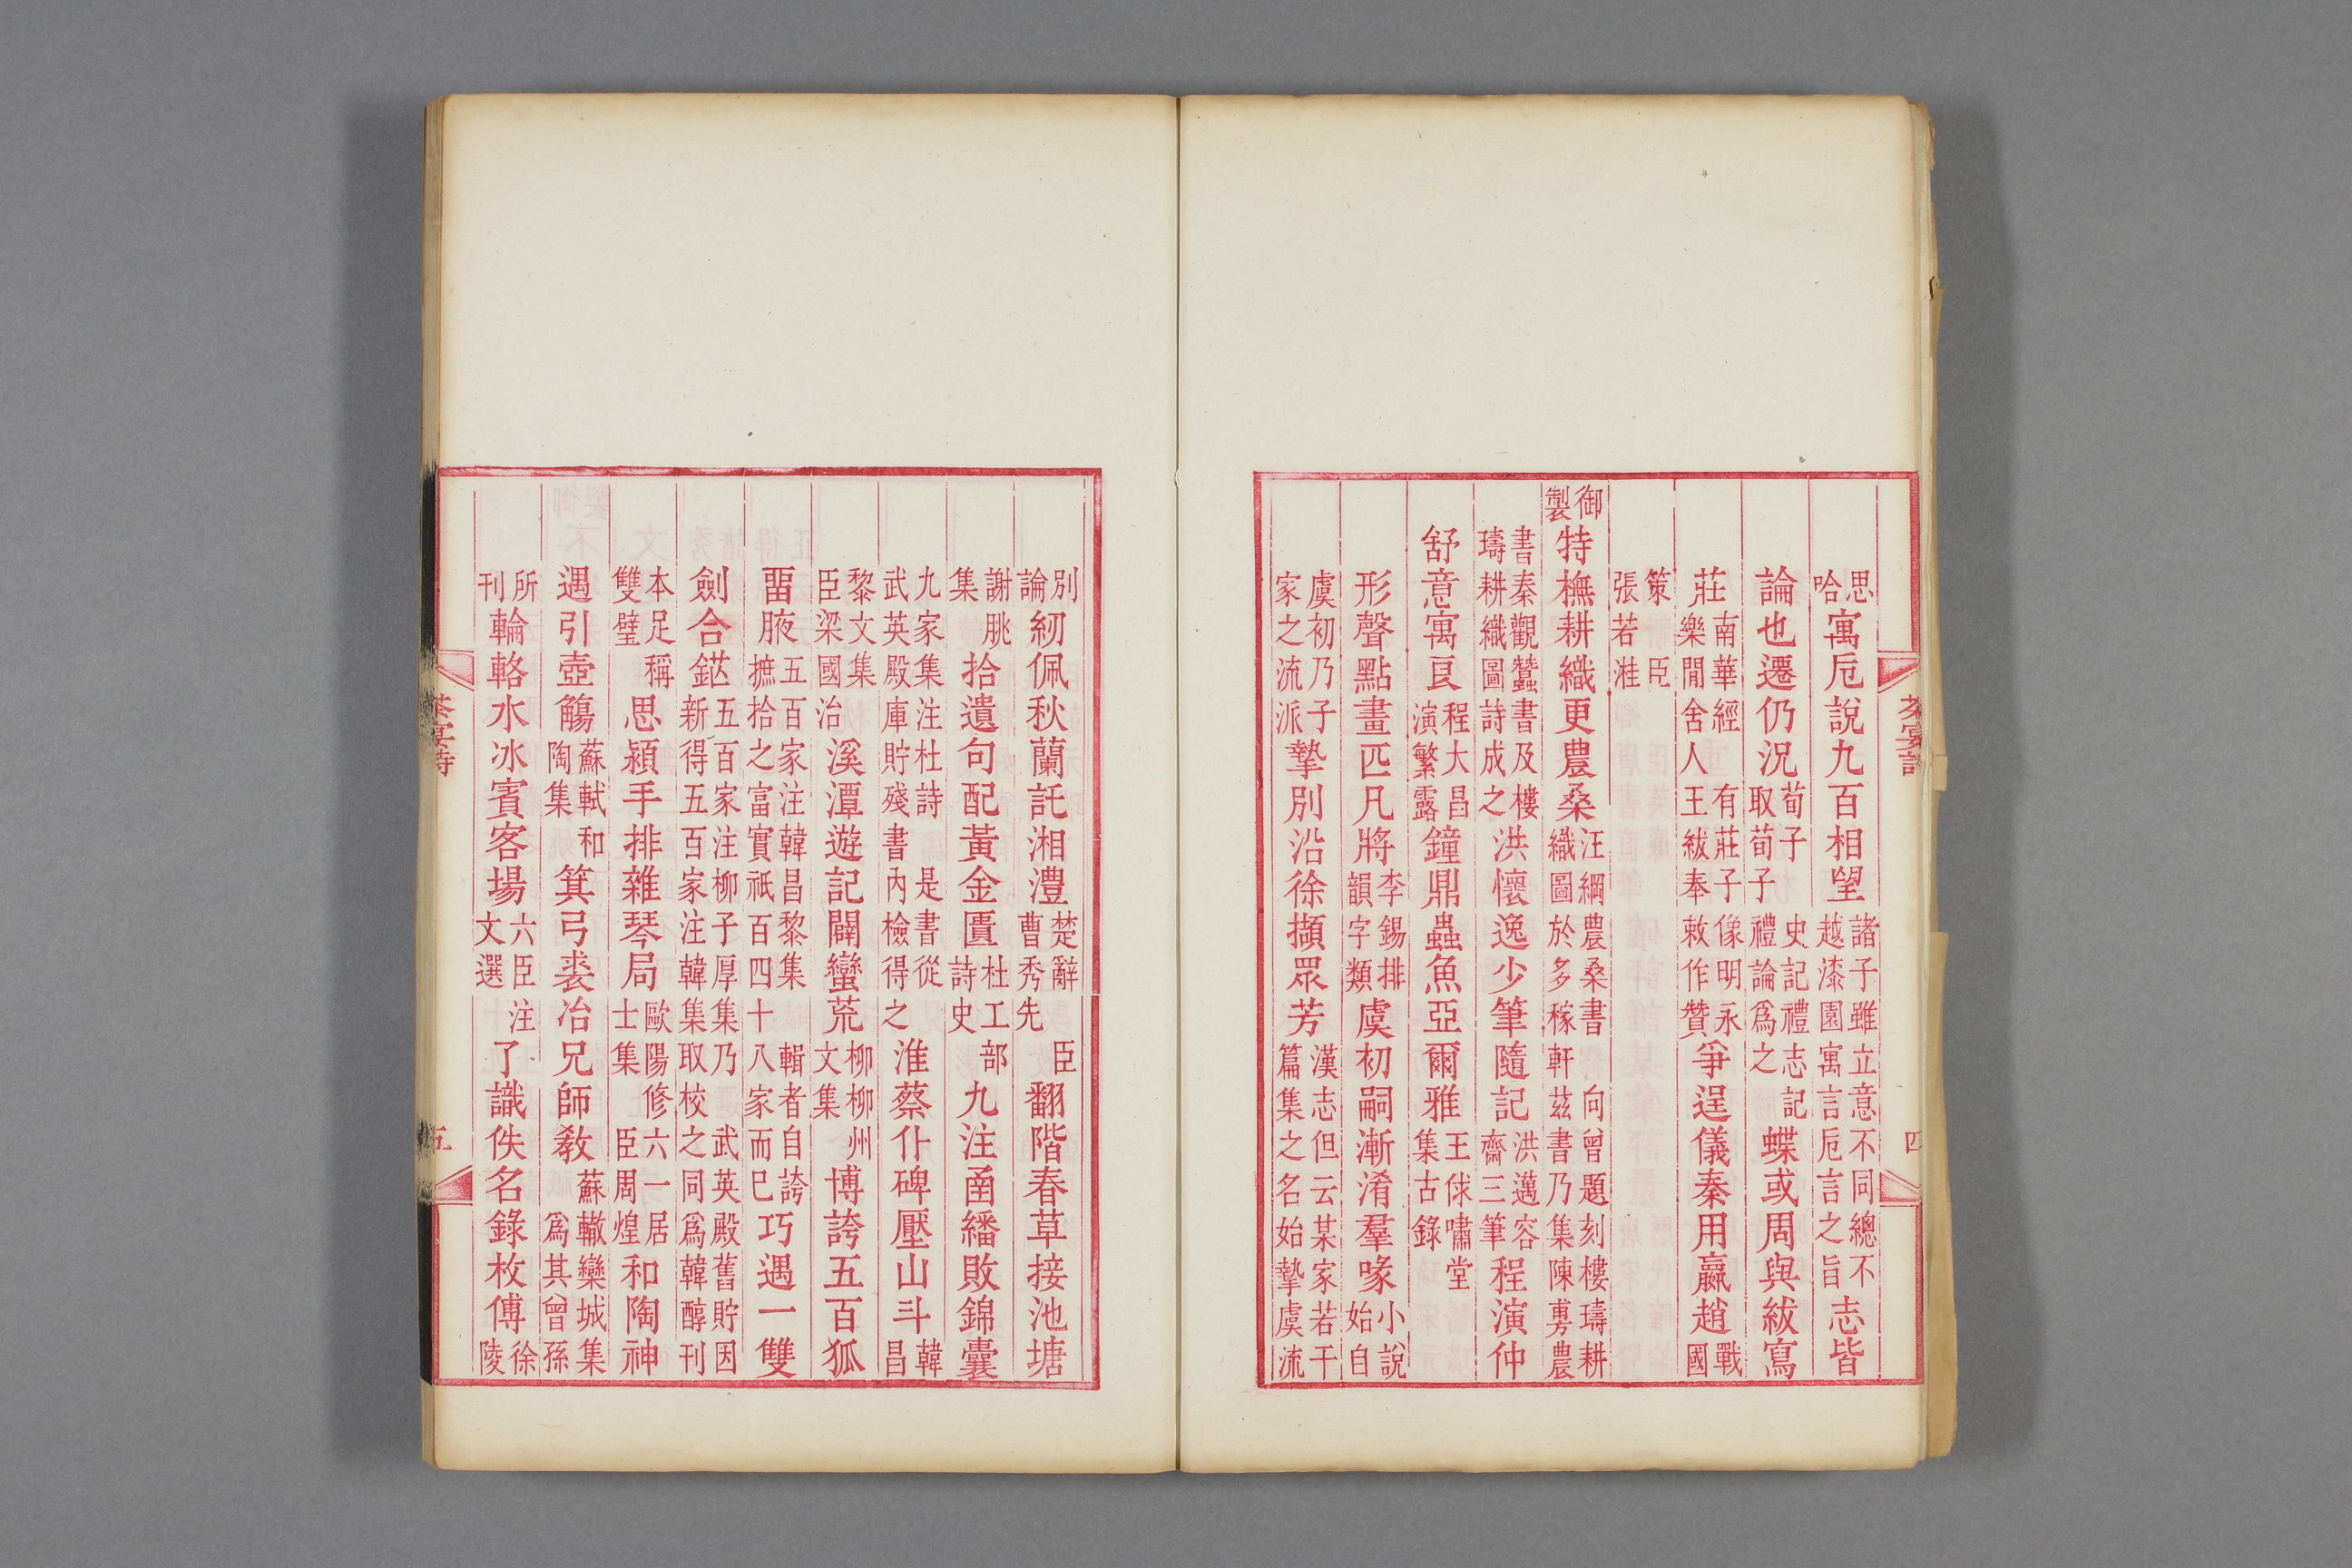 思哈寓巵說九百相望諸子雖立意不同總不越漆園寓言巵言之旨志皆
論也遷仍況荀子史記禮志記取荀子禮論爲之蝶或周與紱寫
莊南華經有莊子像明永樂閒舍人王紱奉敕作贊爭逞儀秦用嬴趙戰國
策臣張若溎
御製特橅耕織更農桑汪綱農桑書向曾題刻樓璹耕織圖於多稼軒茲書乃集陳旉農
書秦觀蠶書及樓璹耕織圖詩成之洪懷逸少筆隨記洪邁容齋三筆程演仲
舒意寓良程大昌演繁露鐘鼎蟲魚亞爾雅王俅嘯堂集古錄
形聲點畫匹凡將李錫排韻字類虞初嗣漸淆羣喙小說始自
虞初乃子家之流派摯別沿徐擷眾芳漢志但云某家若干篇集之名始摯虞流
別論紉佩秋蘭託湘澧楚辭臣曹秀先翻階春草接池塘
謝朓集拾遺句配黃金匱杜工部詩史九注甬繙敗錦囊
九家集注杜詩是書從武英殿庫貯殘書內檢得之淮蔡仆碑壓山斗韓昌
黎文集臣梁國治溪潭遊記闢蠻荒柳柳州文集博誇五百狐
畱腋五百家注韓昌黎集輯者自誇摭拾之富實祇百四十八家而巳巧遇一雙
劍合五百家注柳子厚集乃武英殿舊貯因新得五百家注韓集取校之同爲韓醇刊
本足稱雙璧思潁手排雜琴局歐陽修六一居士集臣周煌和陶神
遇引壺觴蘇軾和陶集箕弓裘冶兄師敎蘇轍欒城集爲其曾孫
所刊輪輅水冰賓客場六臣注文選了識佚名錄枚傅徐陵
茶宴詩
四
五